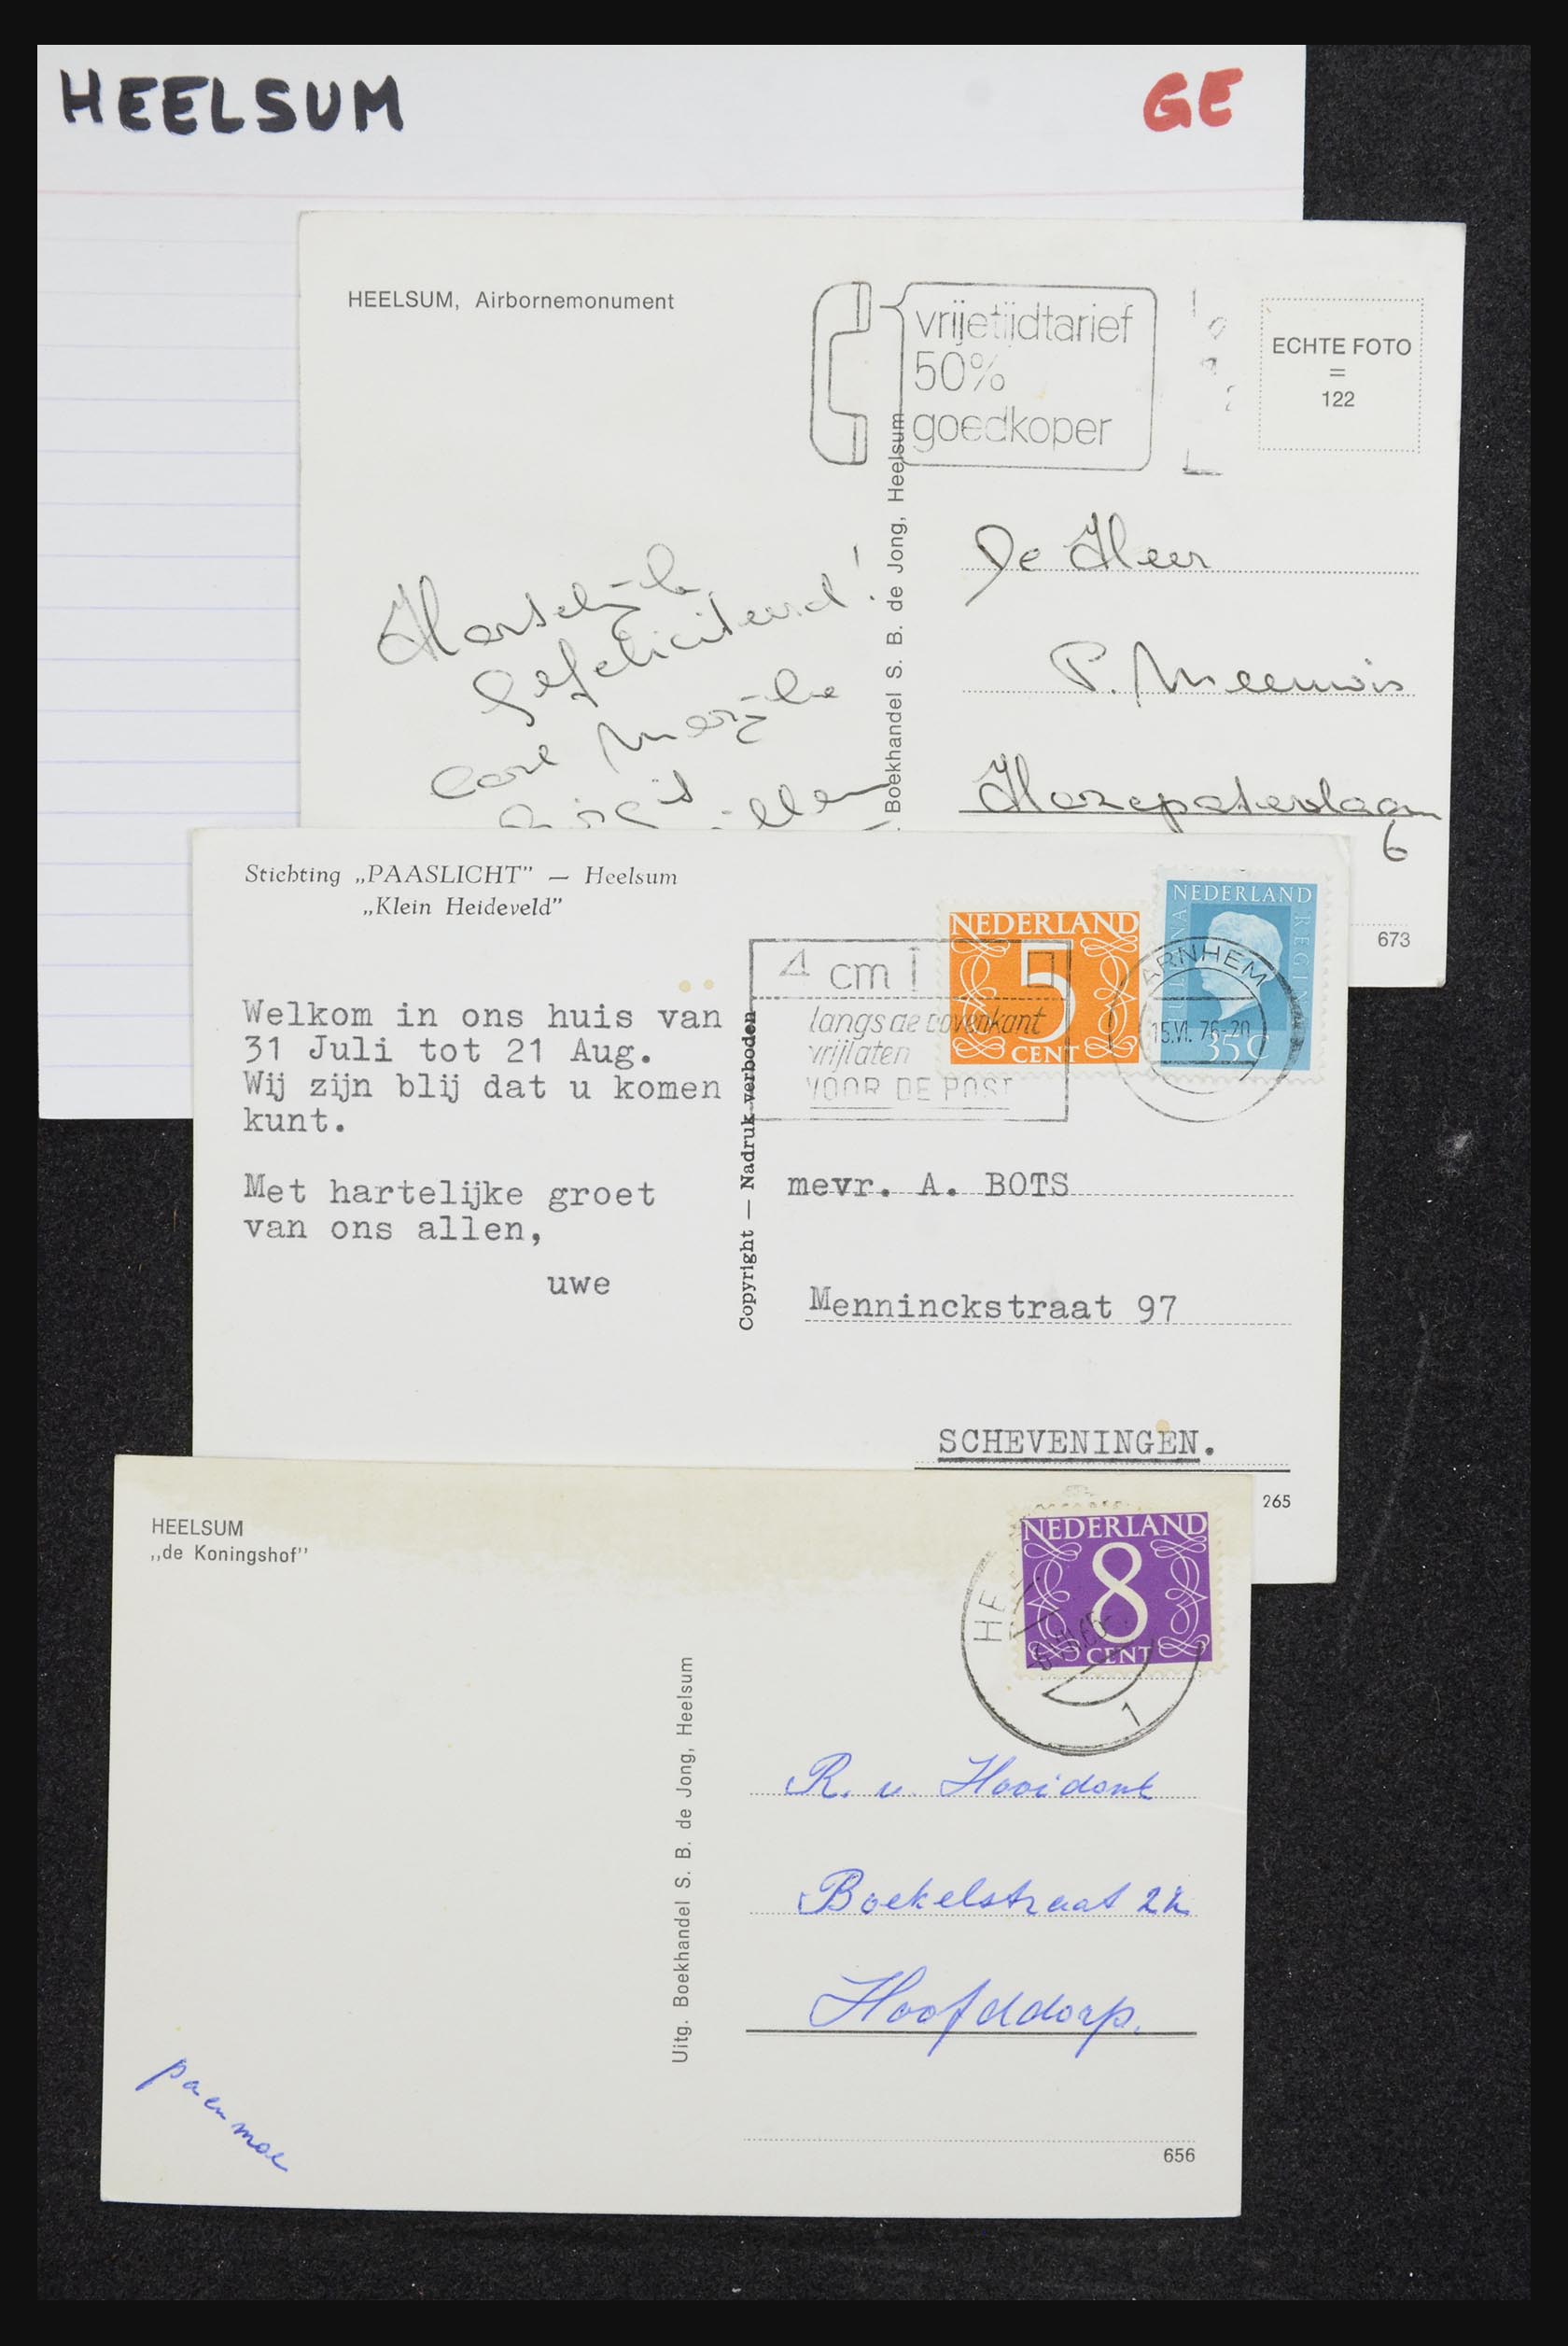 HEELSUM
GE
HEELSUM, Airbornemonument
vrijetijdtarief
50%
goedkoper
ECHTE FOTO
=
122
Hartelijk
Gefeliciteerd!
De Heer
P. Meeuwis
Hazepaterslaan
6
Boekhandel S. B. de Jong, Heelsum
673
Stichting „PAASLICHT” — Heelsum
„Klein Heideveld”
Welkom in ons huis van
31 Juli tot 21 Aug.
Wij zijn blij dat u komen
kunt.
Met hartelijke groet
van ons allen,
uwe
Copyright — Nadruk verboden
4 cm
langs de bovenkant
vrijlaten
VOOR DE POST
NEDERLAND
5
CENT
NEDERLAND
JULIANA REGINA
35 C
ARNHEM
15.VI. 76-20
mevr. A. BOTS
Menninckstraat 97
SCHEVENINGEN.
265
HEELSUM
„de Koningshof”
NEDERLAND
8
CENT
1
Uitg. Boekhandel S. B. de Jong, Heelsum
R. v. Hooidonk
Boekelstraat 22
Hoofddorp.
pa en moe
656